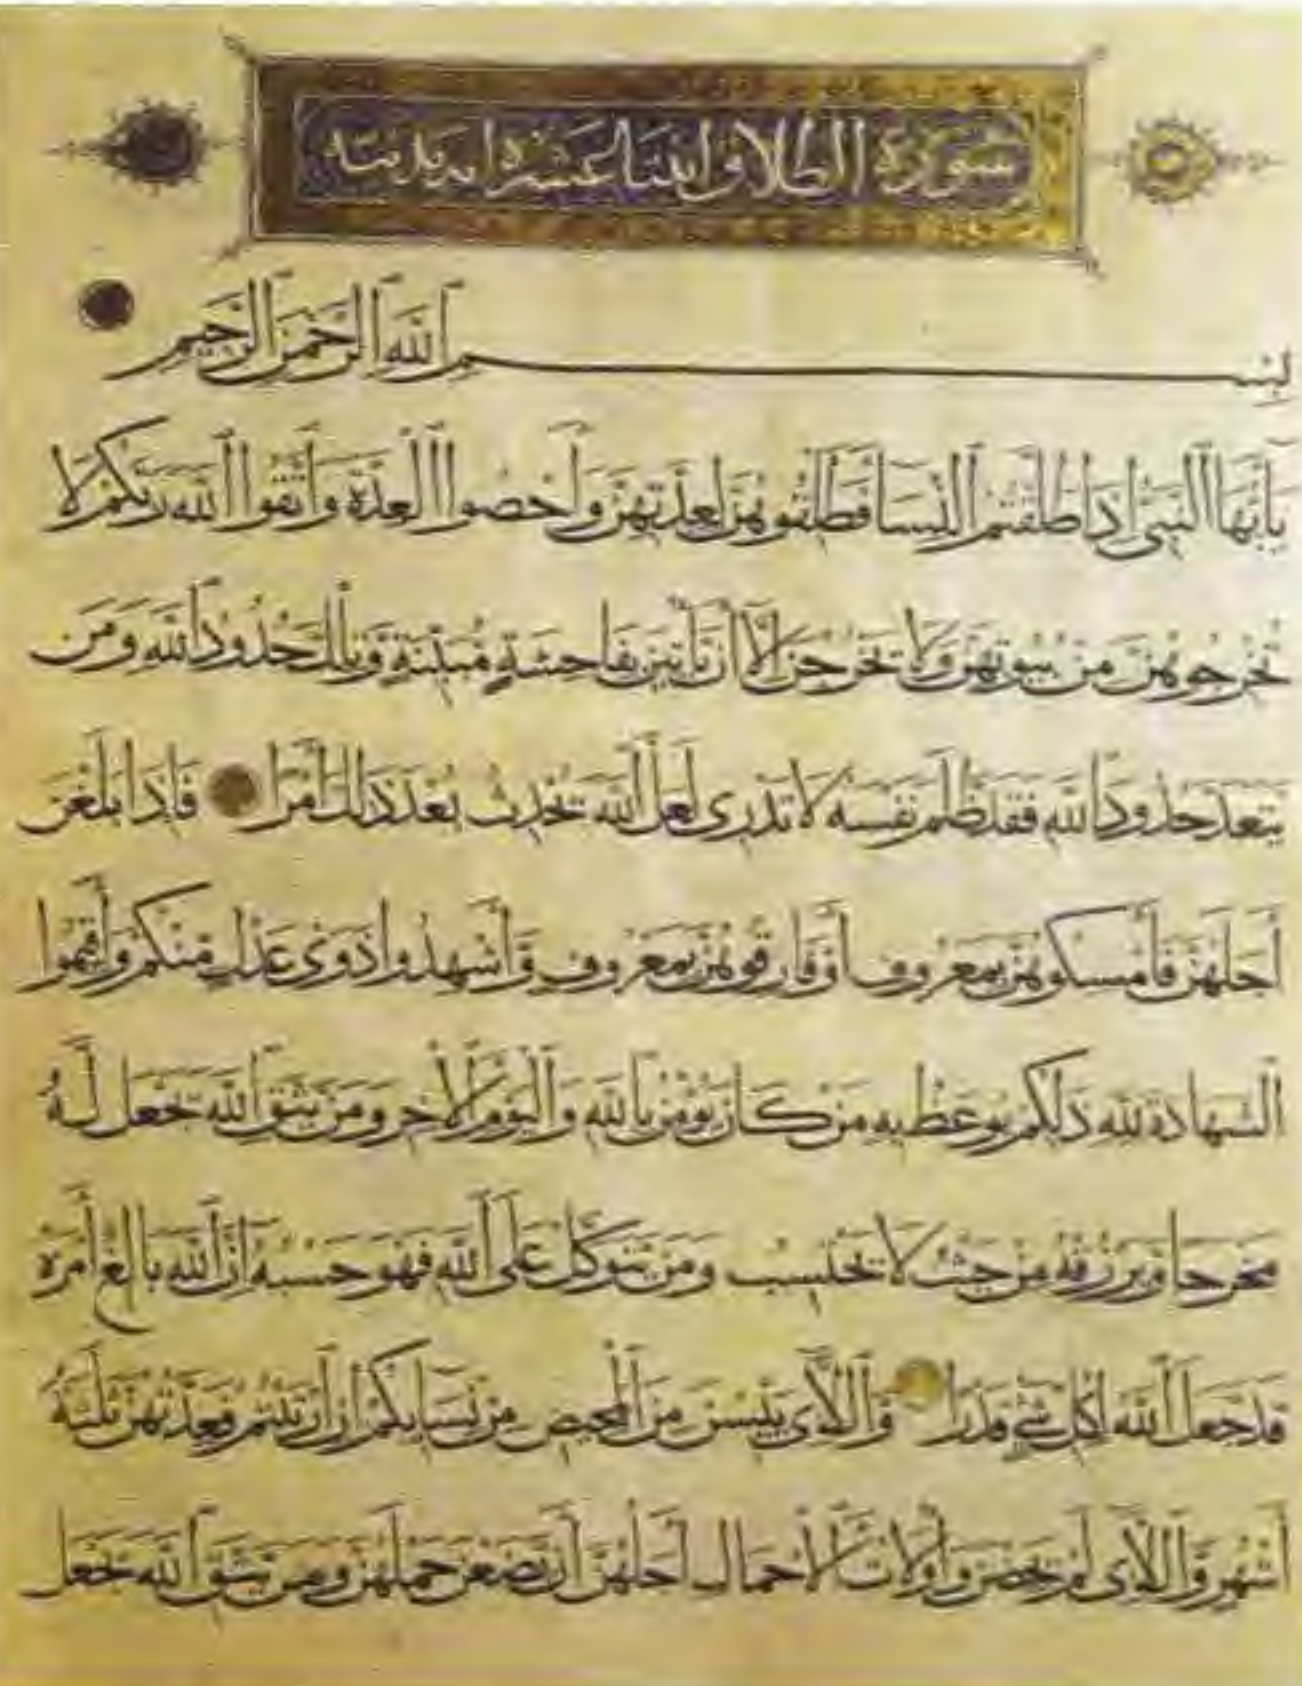 سورة الطلاق اثنتا عشرة اية مدنية
بسم الله الرحمن الرحيم
يا أيها النبي إذا طلقتم النسا فطلقوهن لعدتهن وأحصوا العدة واتقوا الله ربكم لا
تخرجوهن من بيوتهن ولا يخرجن إلا أن يأتين بفاحشة مبينة وتلك حدود الله ومن
يتعد حدود الله فقد ظلم نفسه لا تدرى لعل الله يحدث بعد ذلك أمرا فإذا بلغن
أجلهن فأمسكوهن بمعروف أو فارقوهن بمعروف وأشهدوا ذوى عدل منكم وأقيموا
الشهادة لله ذلكم يوعظ به من كان يؤمن بالله واليوم الآخر ومن يتق الله يجعل له
مخرجا ويرزقه من حيث لا يحتسب ومن يتوكل على الله فهو حسبه إن الله بالغ أمره
قد جعل الله لكل شئ قدرا واللاى يئسن من المحيض من نسايكم إن ارتبتم فعدتهن ثلثة
أشهر واللاى لم يحضن وأولات الأحمال أجلهن أن يضعن حملهن ومن يتق الله يجعل